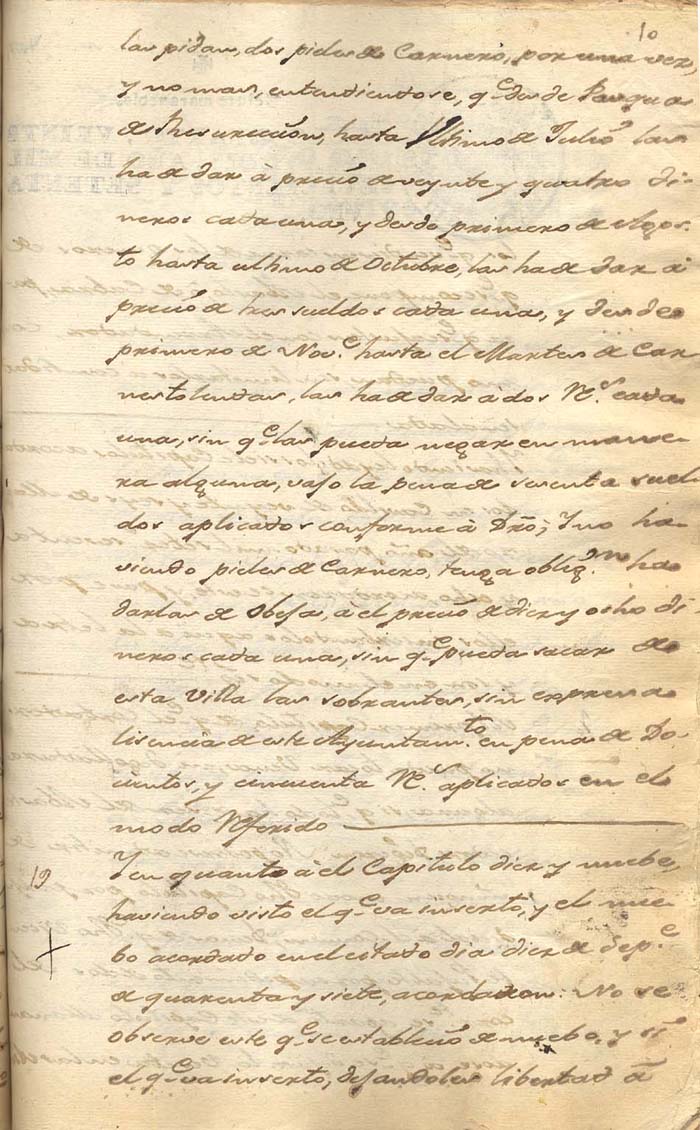 10
las pidan, dos pieles de Carnero, por una vez,
y no mas, entendiendose, q.e desde Pasqua
de Resurección, hasta Ultimo de Julio las
ha de dar à precio de veynte y quatro di-
neros cada una, y desde primero de Agos-
to hasta ultimo de Octubre, las ha de dar à
precio de tres sueldos cada una, y desde
primero de Nov.e hasta el Martes de Car-
nestolendas, las ha de dar à dos R.s cada
una, sin q.e las pueda negar en mane-
ra alguna, vajo la pena de sesenta suel-
dos aplicados conforme à Dró; Y no ha-
viendo pieles de Carnero, tenga oblig.on ha
darlas de Obeja, à el precio de diez y ocho di-
neros cada una, sin q.e pueda sacar de
esta Villa las sobrantes, sin expresa
lisencia de este Ayuntam.to en pena de Do-
cientos, y cinquenta R.s aplicados en el
modo Referido
19 Y en quanto à el Capitulo diez y nuebe,
haviendo visto el q.e va inserto, y el nue-
bo acordado en el citado dia diez de Sep.e
de quarenta y siete, acordaron: No se
observe este q.e se establecio de nuebo, y sí
el q.e va inserto, dejandoles libertad à